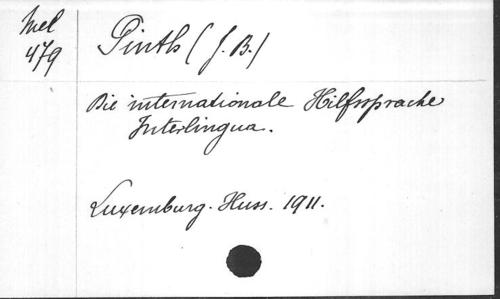 Mel
479
Pinth (J. B.)
Die internationale Hilfssprache
Interlingua.
Luxemburg. Huss. 1911.